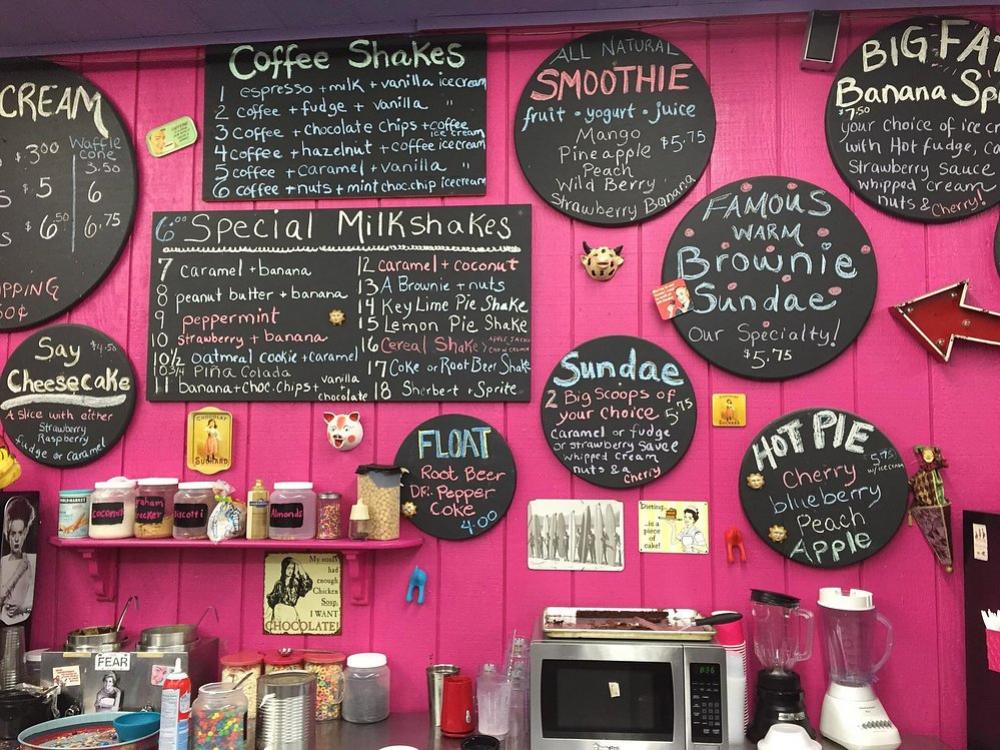 CREAM
Waffle
cone
$3.00 3.50
$5 6
$6.50 6.75
50¢
Coffee Shakes
1 espresso + milk + vanilla icecream
2 coffee + fudge + vanilla "
3 coffee + chocolate chips + coffee
ice cream
4 coffee + hazelnut + coffee icecream
5 coffee + caramel + vanilla "
6 coffee + nuts + mint choc.chip icecream
ALL NATURAL
SMOOTHIE
fruit · yogurt · juice
Mango
Pineapple $5.75
Peach
Wild Berry
Strawberry Banana
BIG FA
Banana Sp
$7.50
your choice of ice c
with Hot fudge, ca
Strawberry Sauce
whipped cream
nuts & cherry!
6.00 Special Milkshakes
7 caramel + banana
8 peanut butter + banana
9 peppermint
10 strawberry + banana
10 1/2 oatmeal cookie + caramel
10 3/4 Piña Colada
11 banana + choc.chips + vanilla
chocolate
12 caramel + coconut
13 A Brownie + nuts
14 Key Lime Pie Shake
15 Lemon Pie Shake
16 Cereal Shake
17 Coke or Root Beer Shake
18 Sherbert + Sprite
FAMOUS
WARM
Brownie
Sundae
Our Specialty!
$5.75
Say $4.50
Cheesecake
A slice with either
Strawberry
Raspberry
fudge or Caramel
Sundae
2 Big Scoops of
your choice 5.75
caramel or fudge
or strawberry sauce
whipped cream
nuts & a
cherry
FLOAT
Root Beer
DR. Pepper
Coke
4.00
HOT PIE
5.75
w/ice cream
Cherry
blueberry
Peach
Apple
CHOCOLAT
SUCHARD
coconut
graham
cracker
biscotti
Almonds
Dieting
..is a
piece
of
cake!
My soul's
had
enough
Chicken
Soup,
I WANT
CHOCOLATE!
FEAR